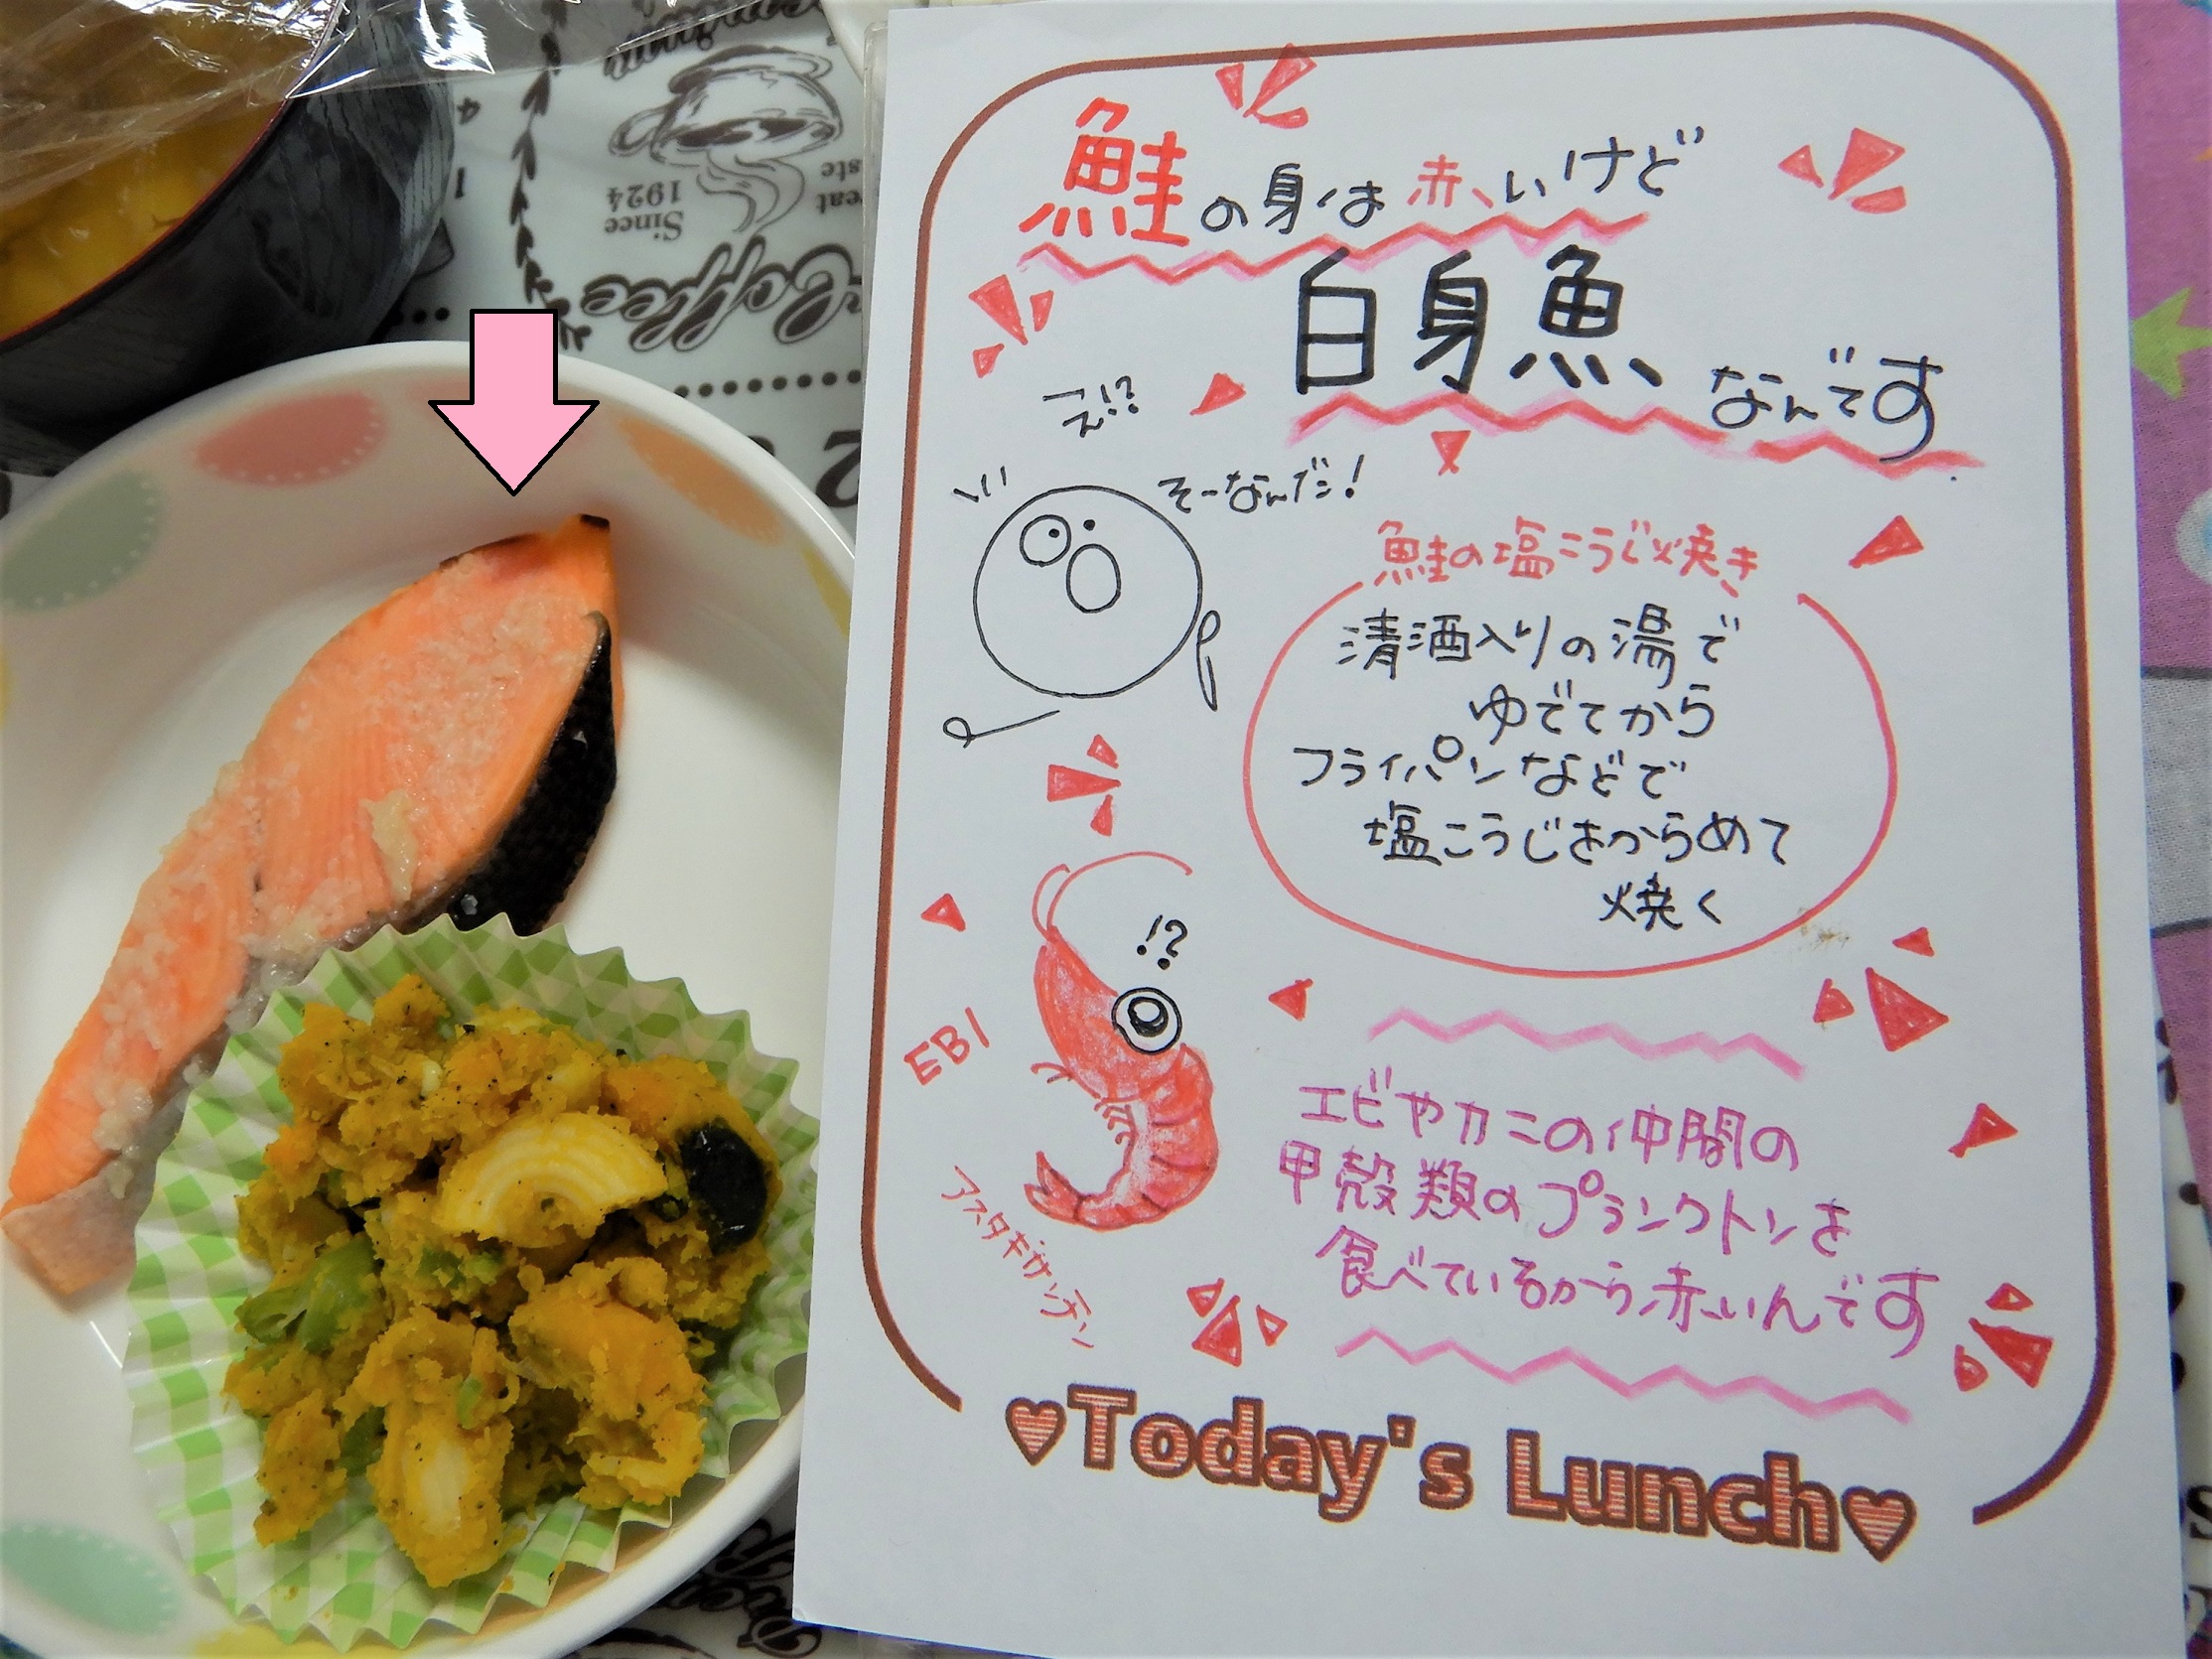 鮭の身は赤いけど
白身魚なんです
え!?
そーなんだ!
鮭の塩こうじ焼き
清酒入りの湯で
ゆでてから
フライパンなどで
塩こうじをからめて
焼く
!?
EBI
アスタキサンチン
エビやカニの仲間の
甲殻類のプランクトンを
食べているから赤いんです
♥Today's Lunch♥
Coffee
Since
1924